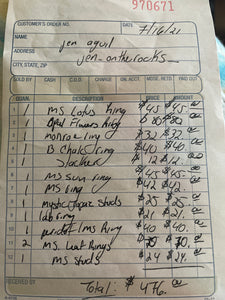 970671
CUSTOMER'S ORDER NO. DATE 7/16/21
NAME jen aguil
ADDRESS jen_ontherocks_
CITY, STATE, ZIP
SOLD BY CASH C.O.D. CHARGE ON ACCT. MDSE. RETD. PAID OUT
QUAN. DESCRIPTION PRICE AMOUNT
1 MS Lotus ring $45 $45.00
1 Opal Flowers Ring $80 $80.00
1 monroe ring $32 $32.00
1 B Chalc ring $40 $40.00
1 Stacker $12 $12.00
1 MS Sun ring $45 $45.00
1 MS ring $42 $42.00
1 mystic topaz studs $25 $25.00
1 lab ring $21 $21.00
1 peridot MS Ring $40 $40.00
2 MS Leaf Rings $70.00
1 MS Studs $24 $24.00
RECEIVED BY Total: $476.00